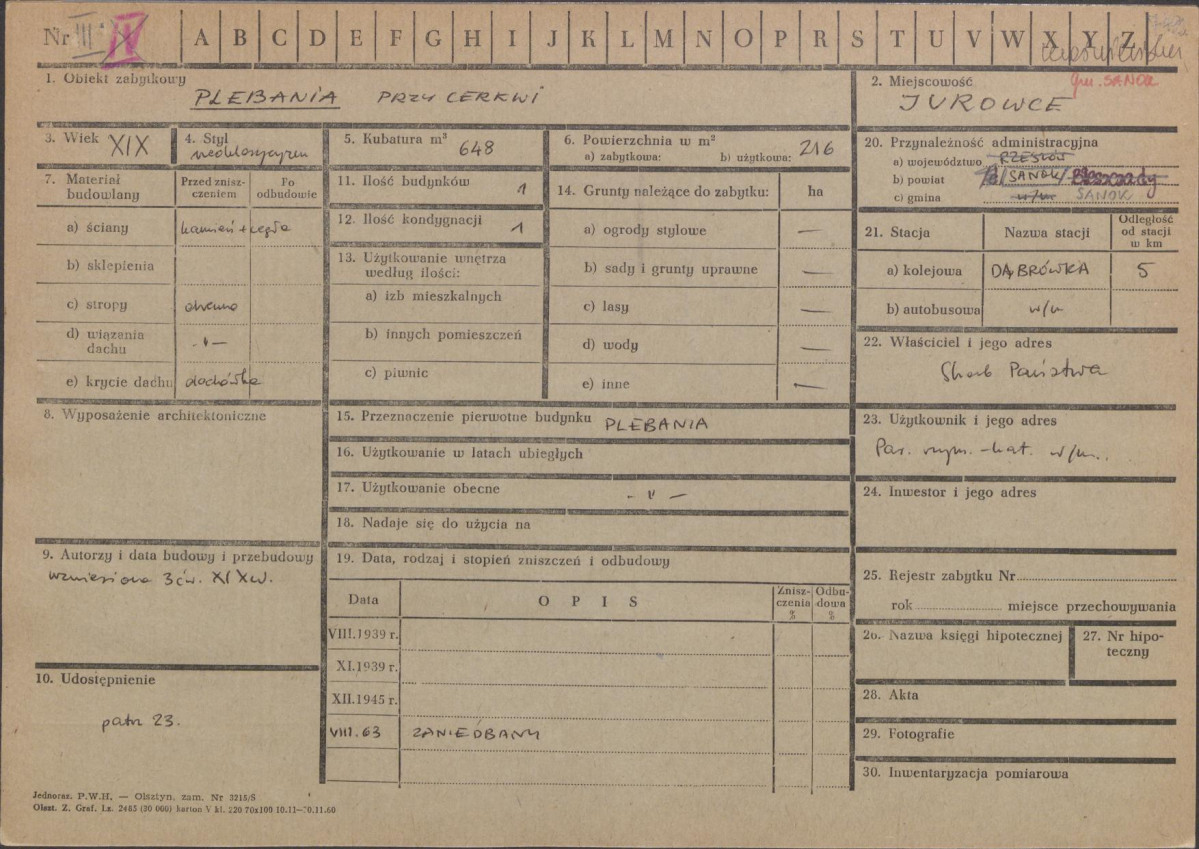 Nr III A B C D E F G H I J K L M N O P R S T U V W X Y Z
gm. SANOK
1. Obiekt zabytkowy
PLEBANIA PRZY CERKWI
2. Miejscowość
JUROWCE
3. Wiek XIX
4. Styl
5. Kubatura m³ 648
6. Powierzchnia w m²
a) zabytkowa: b) użytkowa: 216
20. Przynależność administracyjna
a) województwo RZESZÓW
b) powiat SANOK Bieszczady
c) gmina w/m SANOK
7. Materiał budowlany
Przed zniszczeniem
Po odbudowie
a) ściany kamień + cegła
b) sklepienia
c) stropy drewno
d) wiązania dachu -"-
e) krycie dachu dachówka
11. Ilość budynków 1
12. Ilość kondygnacji 1
13. Użytkowanie wnętrza według ilości:
a) izb mieszkalnych
b) innych pomieszczeń
c) piwnic
14. Grunty należące do zabytku: ha
a) ogrody stylowe —
b) sady i grunty uprawne —
c) lasy —
d) wody —
e) inne —
21. Stacja
Nazwa stacji
Odległość od stacji w km
a) kolejowa DĄBRÓWKA 5
b) autobusowa w/m
22. Właściciel i jego adres
Skarb Państwa
8. Wyposażenie architektoniczne
15. Przeznaczenie pierwotne budynku PLEBANIA
16. Użytkowanie w latach ubiegłych
17. Użytkowanie obecne -"-
18. Nadaje się do użycia na
23. Użytkownik i jego adres
Par. rzym.-kat. w/m.
24. Inwestor i jego adres
9. Autorzy i data budowy i przebudowy
wzniesiona 3 ćw. XIXw.
19. Data, rodzaj i stopień zniszczeń i odbudowy
Data
OPIS
Zniszczenia %
Odbudowa %
VIII.1939 r.
XI.1939 r.
XII.1945 r.
VIII.63 ZANIEDBANY
25. Rejestr zabytku Nr
rok miejsce przechowywania
26. Nazwa księgi hipotecznej
27. Nr hipoteczny
10. Udostępnienie
patrz 23.
28. Akta
29. Fotografie
30. Inwentaryzacja pomiarowa
Jednoraz. P.W.H. — Olsztyn, zam. Nr 3215/S
Olszt. Z. Graf. Lz. 2465 (30 000) karton V kl. 220 70x100 10.11—30.11.60